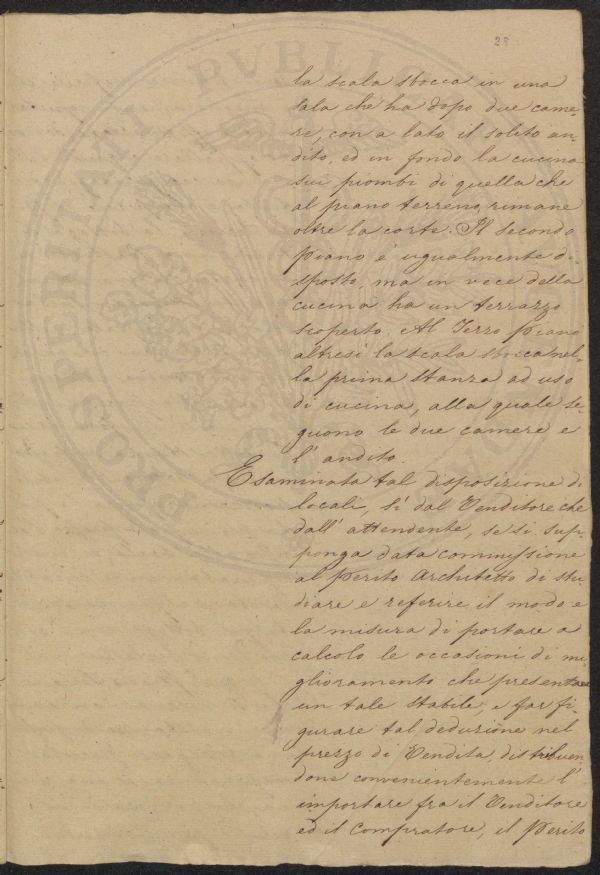 28
la scala sbocca in una
sala che ha dopo due came-
re, con a lato il solito an-
dito, ed in fondo la cucina
sui piombi di quella che
al piano terreno rimane
oltre la corte. Il secondo
piano è ugualmente di-
sposto, ma in voce della
cucina ha un terrazzo
scoperto. Al Terzo piano
altresì la scala sbocca nel-
la prima stanza ad uso
di cucina, alla quale se-
guono le due camere e
l'andito.
Esaminata tal disposizione di
locali, sì dal Venditore che
dall'attendente, se si sup-
ponga data commissione
al Perito Architetto di stu
diare e referire il modo e
la misura di portare a
calcolo le occasioni di mi
glioramento che presentasse
un tale stabile, e far fi
gurare tal deduzione nel
prezzo di Vendita distribuen-
done convenientemente l'
importare fra il Venditore
ed il Compratore, il Perito
PROSPERITATI PVBLIC